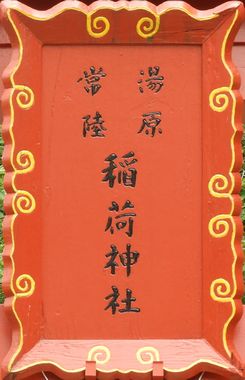 湯原
常陸
稲荷神社